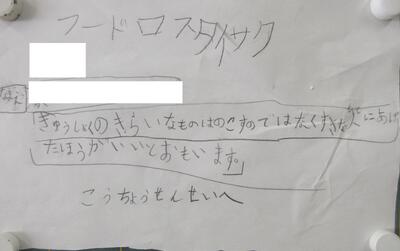 フードロスタイサク
きゅうしょくのきらいなものはのこすのではなくすきな人にあげ
たほうがいいとおもいます。
こうちょうせんせいへ